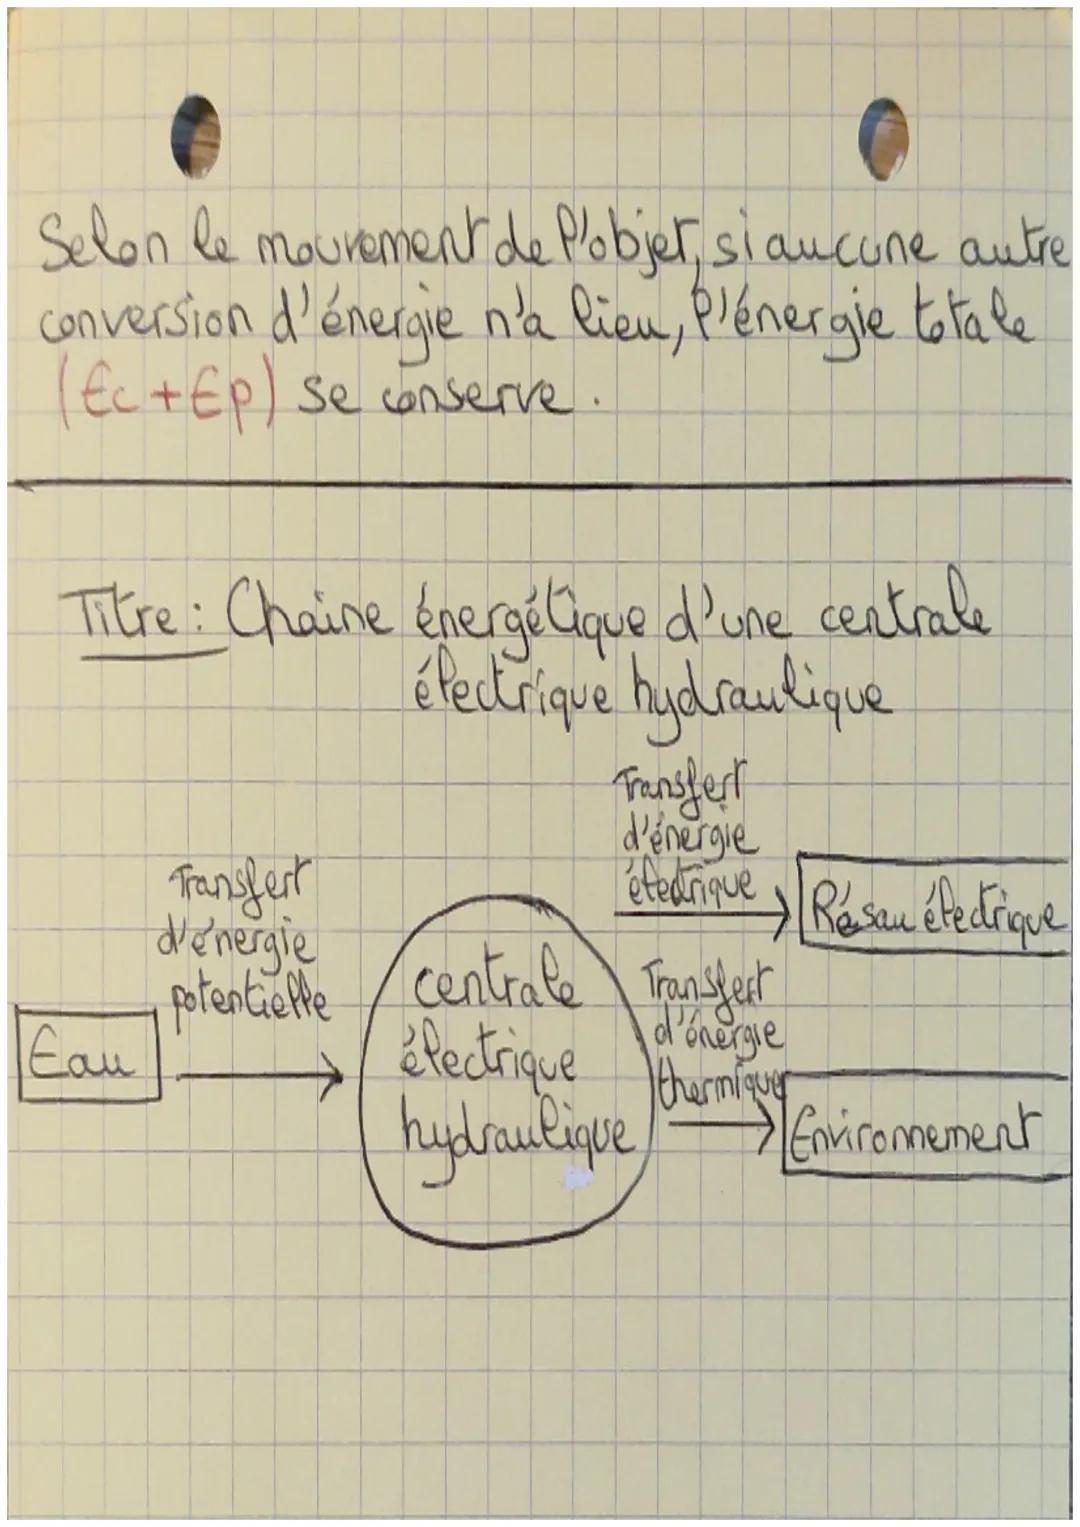 Selon le mouvement de l'objet, si aucune autre
conversion d'énergie n'a lieu, l'énergie totale
(Ec + Ep) se conserve.
Titre : Chaine énergétique d'une centrale
électrique hydraulique
Transfert
d'énergie
potentielle
Eau
centrale
électrique
hydraulique
Transfert
d'énergie
électrique
Résau électrique
Transfert
d'énergie
thermique
Environnement